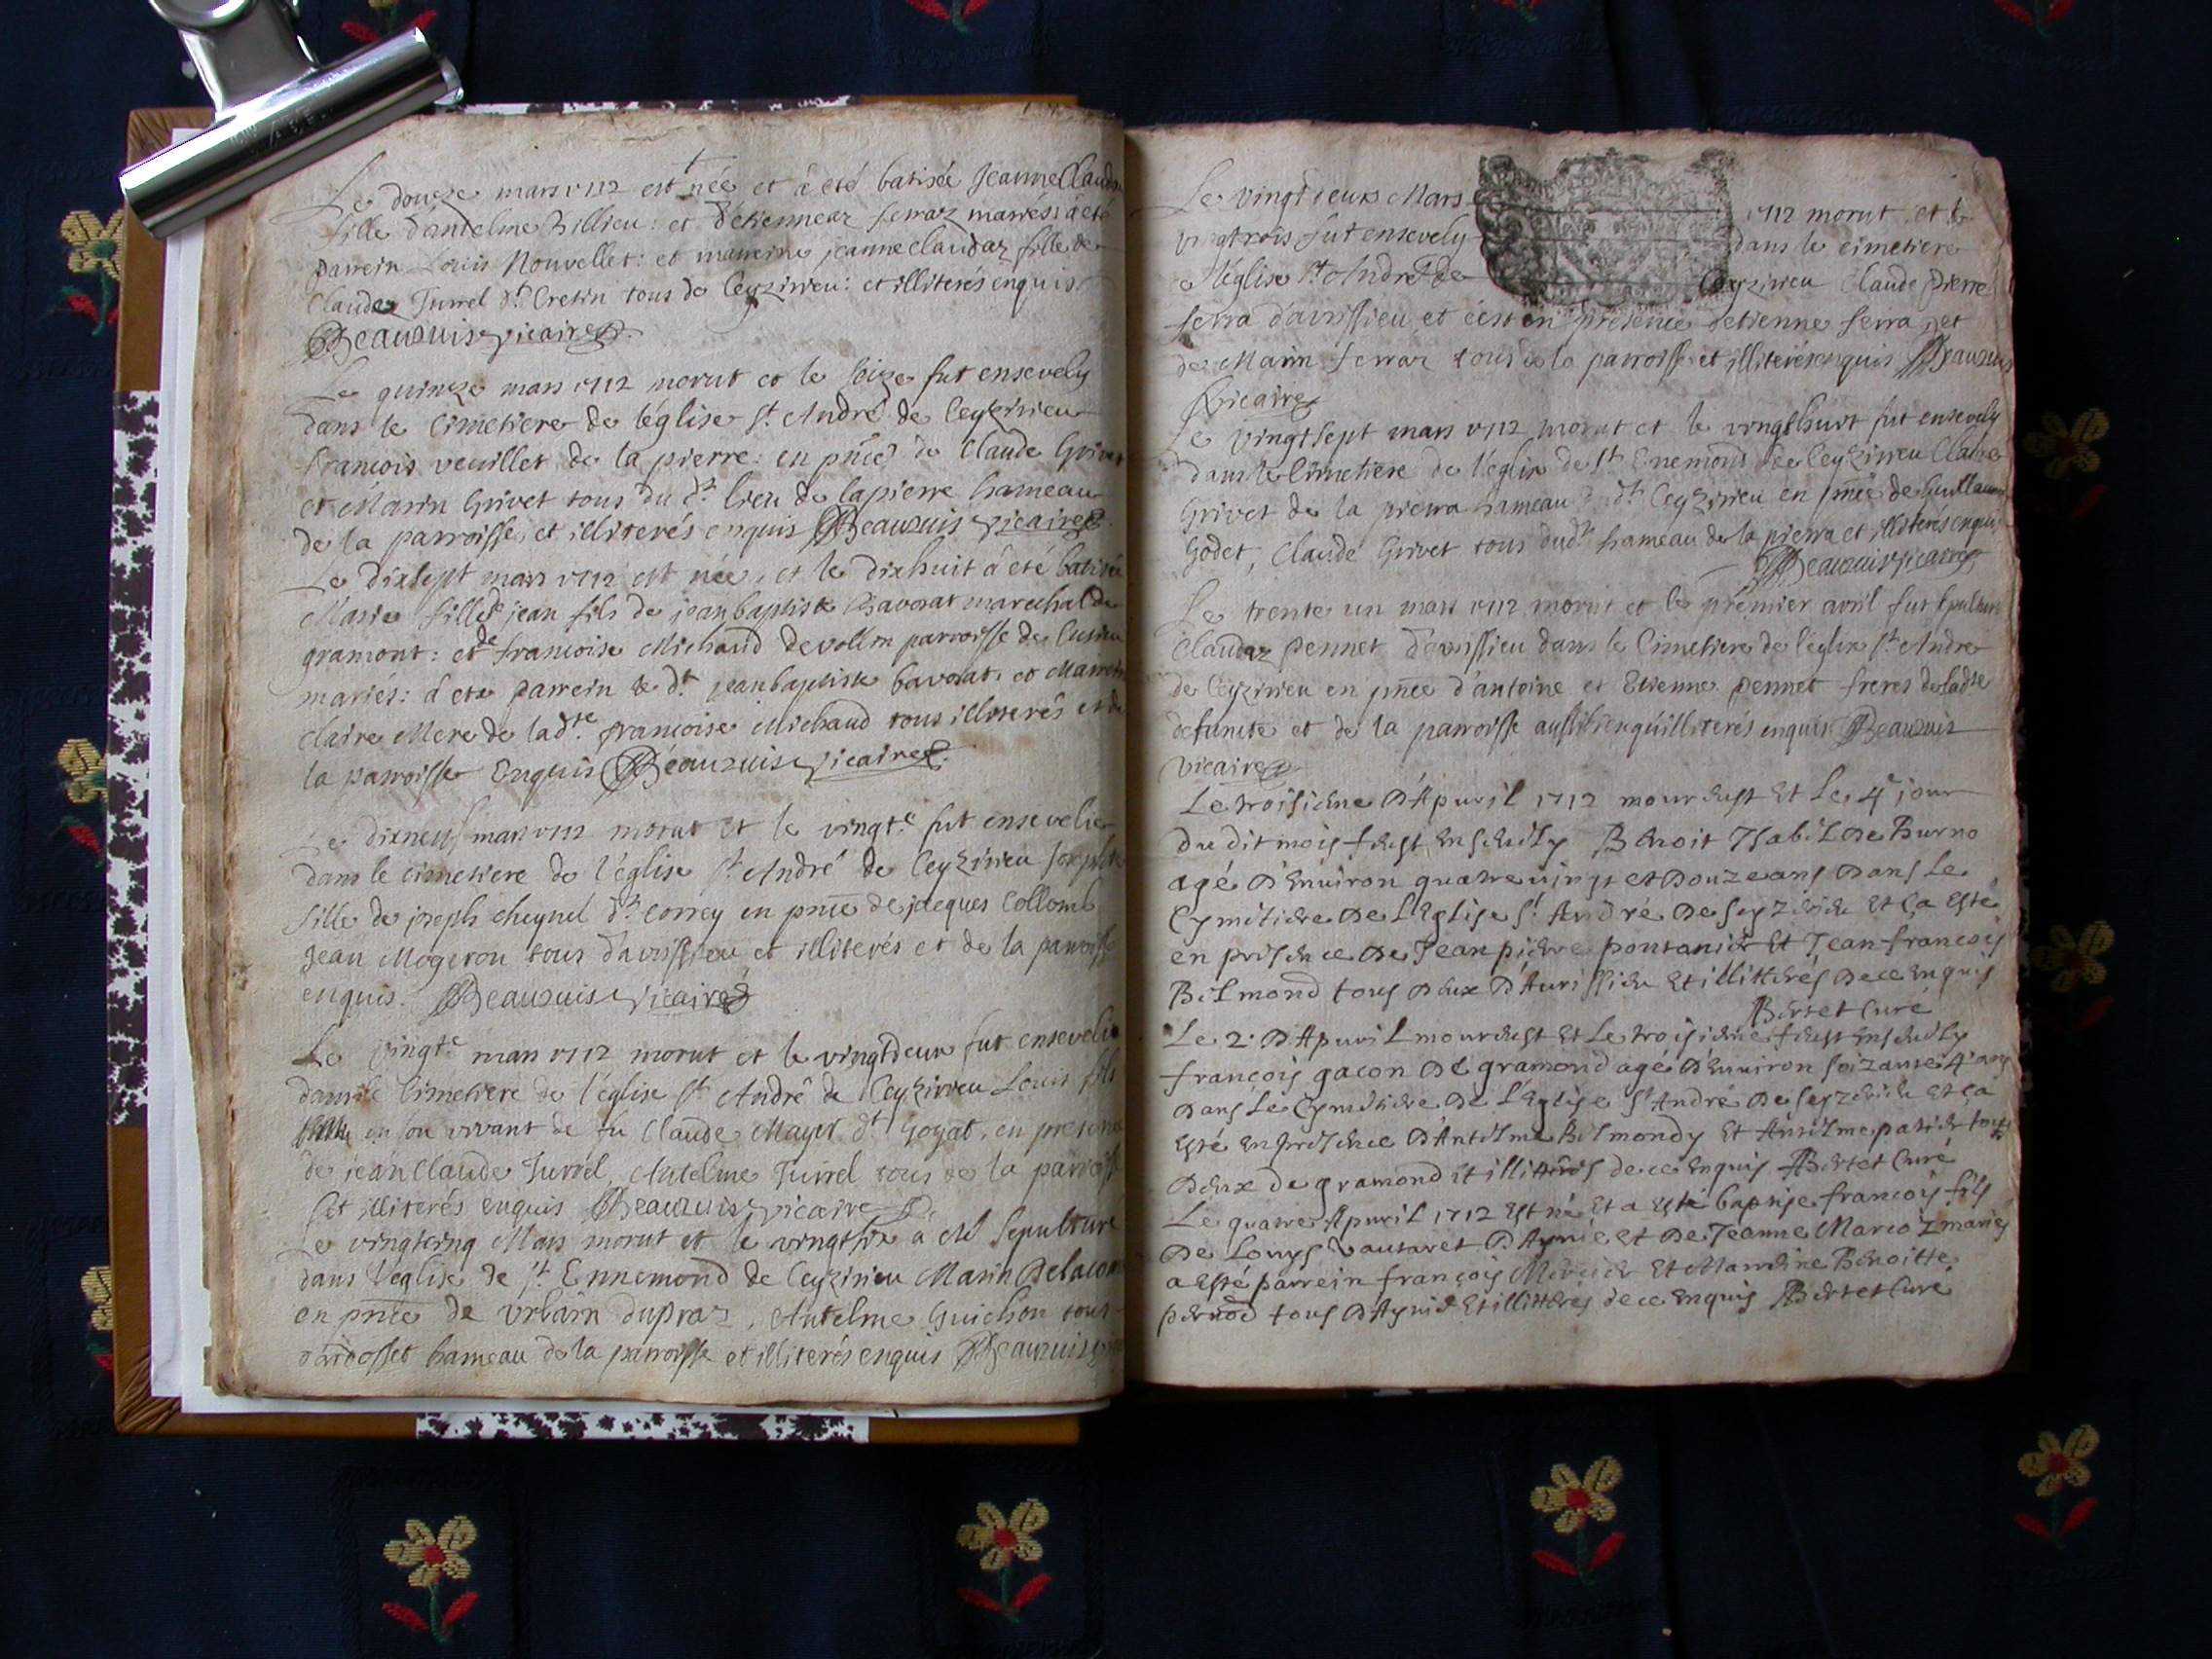 Le douze mars 1712 est née et à été batisée Jeanne Claudaz
fille d'antelme Billieu: et d'étiennaz serraz mariés: a été
parrein Louis Nouvellet: et marreine jeanne claudaz fille de
Claude Jurrel dt Cretin tous de Ceyzirieu: et illiterés enquis
Beauzuis vicaire
Le quinze mars 1712 morut et le seize fut ensevely
dans le Cimetiere de l'église St. André de Ceyzirieu
francois veuillet de la pierre: en pnce de Claude Grivet
et Marin Grivet tous du dt. lieu de lapierre hameau
de la parroisse, et illiterés enquis Beauzuis vicaire
Le dixsept mars 1712 est née, et le dixhuit à été batisée
Marie fille de jean fils de jean baptiste Bavorat marechal de
gramont: et de francoise Michaud de vollin parroisse de
mariés: à eté parrein le dt. jean baptiste bavorat, et Marreine
claire Mere de la dte. francoise Michaud tous illiterés et de
la parroisse Enquis Beauzuis vicaire
Le dixneuf mars 1712 morut et le vingte. fut ensevelie
dans le cimetiere de l'église St André de Ceyzirieu
fille de joseph cheynel dt. correy en pnce de jacques Collomb
Jean Mogeron tous d'avrissieu et illiterés et de la parroisse
enquis. Beauzuis vicaire
Le vingte mars 1712 morut et le vingtdeux fut ensevelie
dans le Cimetiere de l'église St André de Ceyzirieu Louis fils
en son vivant de fu Claude Mayet dt Goyat, en presence
de jean Claude Jurrel, Antelme Jurrel tous de la parroisse
et illiterés enquis Beauzuis vicaire
Le vingtcinq Mars morut et le vingtsix a eté sepulturé
dans l'église de St. Ennemond de Ceyzirieu Marin Delacom
en pnce de Urbain dupraz, Antelme Guichon tous
d'ardosset hameau de la parroisse et illiterés enquis Beauzuis
Le vingtdeux Mars 1712 morut, et le
vingtrois fut ensevely dans le cimetiere
de l'église St. André de Ceyzirieu Claude pierre
serra d'avrissieu et c'est en présence d'etienne serra, et
de Marin serraz tous de la parroisse et illiterés enquis Beauzuis
vicaire
Le vingtsept mars 1712 morut et le vingthuit fut ensevely
dans le Cimetiere de l'eglise de St Enemond de Ceyzirieu Claude
Grivet de la pierra hameau dt. Ceyzirieu en pnce de Guillaume
Godet, Claude Grivet tous dudt. hameau de la pierra et illiterés enquis
Beauzuis vicaire
Le trente un mars 1712 morut et le prémier avril fut sepulturé
Claudaz pennet d'avrissieu dans le Cimetiere de l'église St. Andre
de Ceyzirieu en pnce d'antoine et Etienne pennet freres de ladte
defuncte et de la parroisse aussi bien qu'illiterés enquis Beauzuis
vicaire
Le troisieme D'Apuvril 1712 mourust Et Le 4e jour
du dit mois fust Enseuely Benoit Isabil De Burno
agé D'Enuiron quatre uingt et Douze ans Dans Le
Cymetiere De L'Eglise St. André De Seyzerieu Et ça Esté
en presence De Jean pierre pontanier Et Jean francois
Belmond tous Deux D'Aurissieu Et illitterés De ce Enquis
Bertet Curé
Le 2. D'Apuvril mourust Et Le troisieme fust Enseuely
françois gacon De gramond agé D'Enuiron soizante 4 ans
Dans Le Cymetiere De L'Eglise St André De Seyzerieu Et ça
Esté En presence D'Antelme Belmond Et Antelme tous
Deux de gramond Et illitterés de ce Enquis Bertet Curé
Le quatre Apuvril 1712 Est né Et a Esté baptisé francois fils
De Louys vautaret D'Aynie et De Jeanne Marcoz mariés
a Esté parrein françois Mercier Et Marreine Benoitte
pernod tous D'Aynie Et illitterés de ce Enquis Bertet Curé